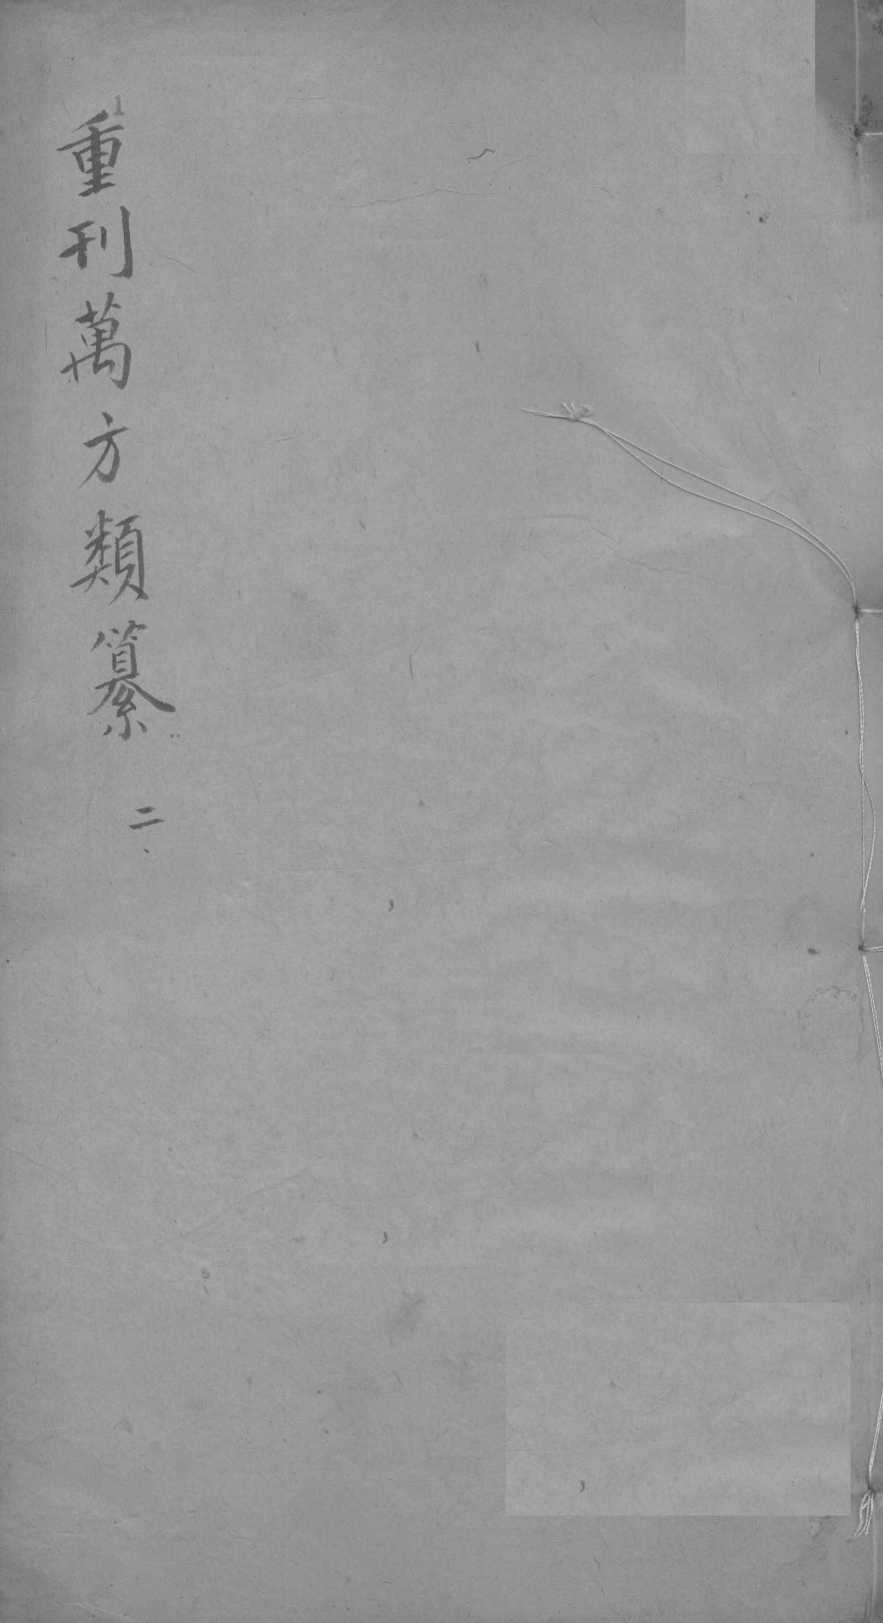 重刊萬方類纂 二